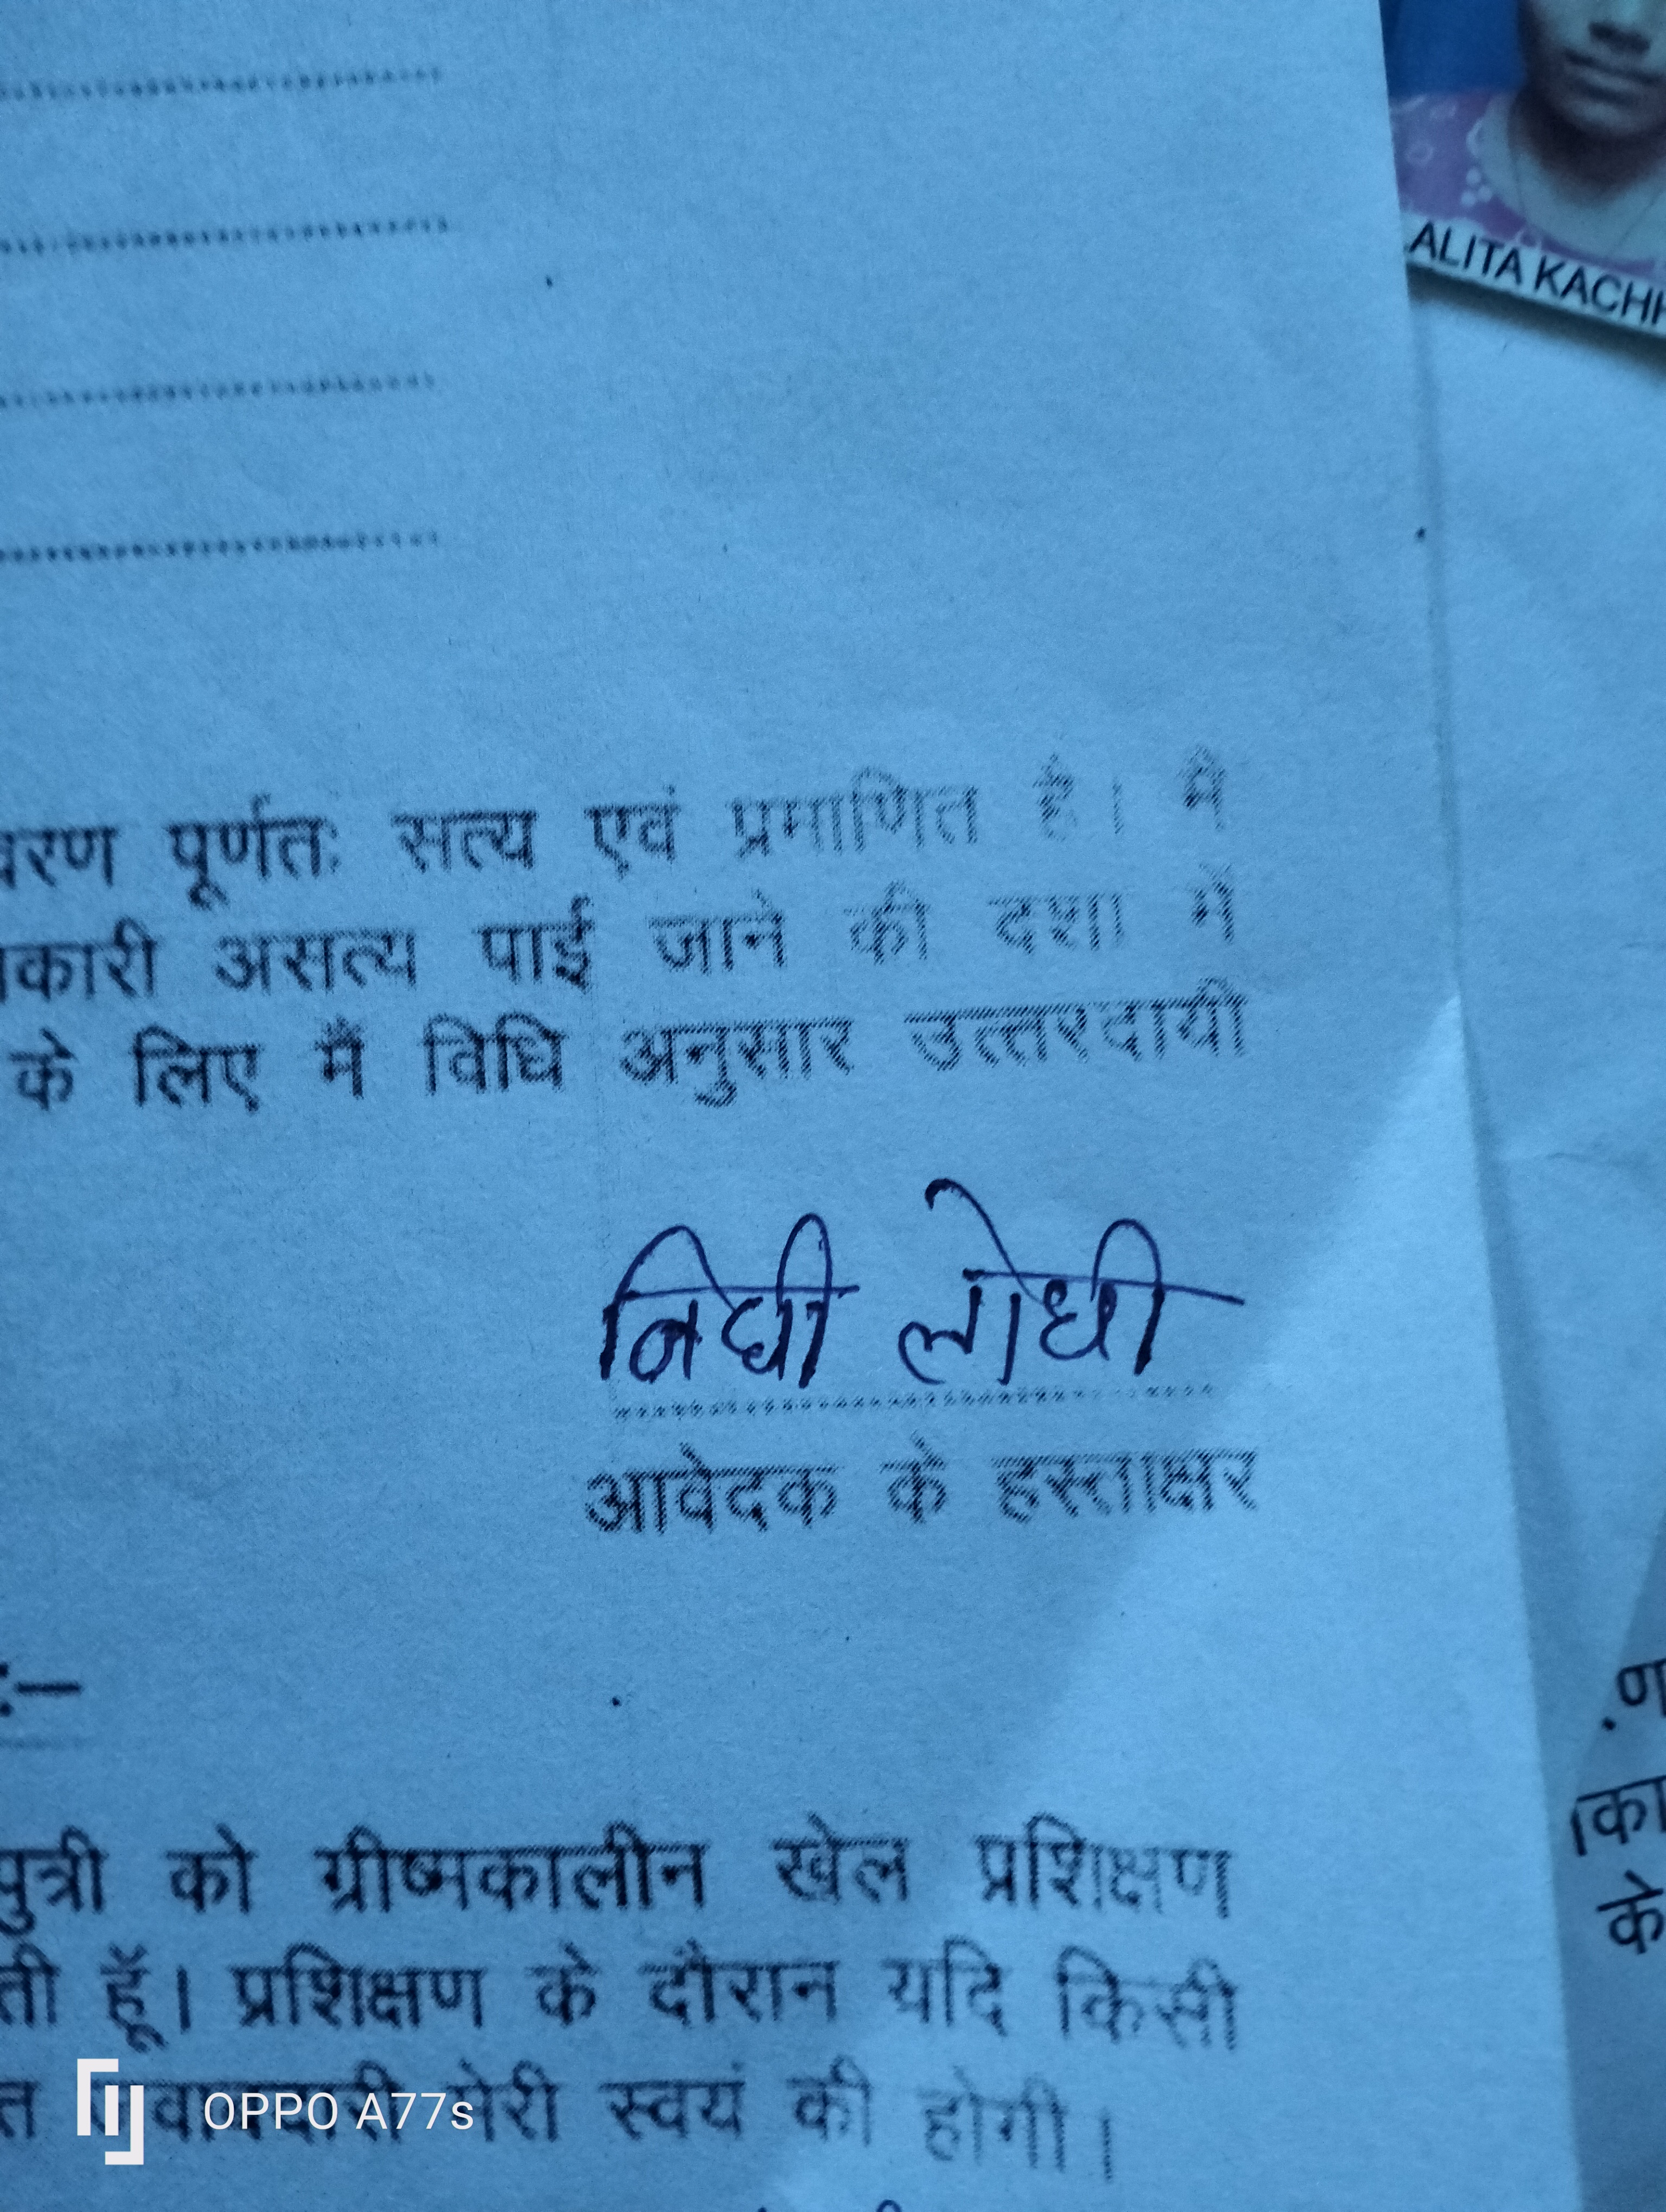 ALITA KACHH
वरण पूर्णतः सत्य एवं प्रमाणित है। मै
कारी असत्य पाई जाने की दशा में
के लिए मैं विधि अनुसार उत्तरदायी
निधी लोधी
आवेदक के हस्ताक्षर
:–
पुत्री को ग्रीष्मकालीन खेल प्रशिक्षण
ती हूँ। प्रशिक्षण के दौरान यदि किसी
त मेरी स्वयं की होगी।
ण
का
के
OPPO A77s